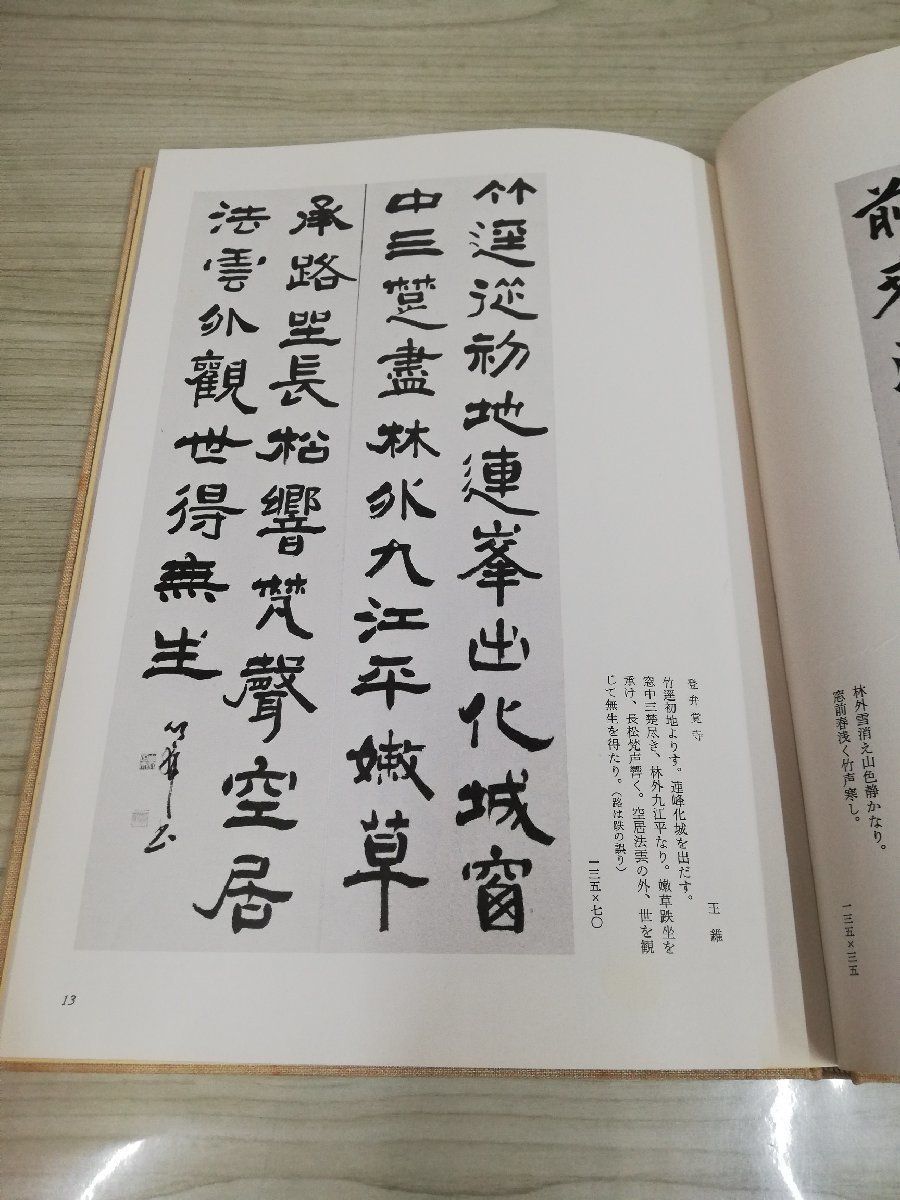 竹逕從初地連峯出化城窗
中三楚盡林外九江平嫩草
承路坐長松響梵聲空居
法雲外觀世得無生
登弁覚寺
王維
竹逕初地よりす。連峰化城を出だす。
窓中三楚尽き、林外九江平なり。嫩草趺坐を
承け、長松梵声響く。空居法雲の外、世を観
じて無生を得たり。(路は趺の誤り)
一三五×七〇
13
前
林外雪消え山色静かなり。
窓前春浅く竹声寒し。
一三五×三五